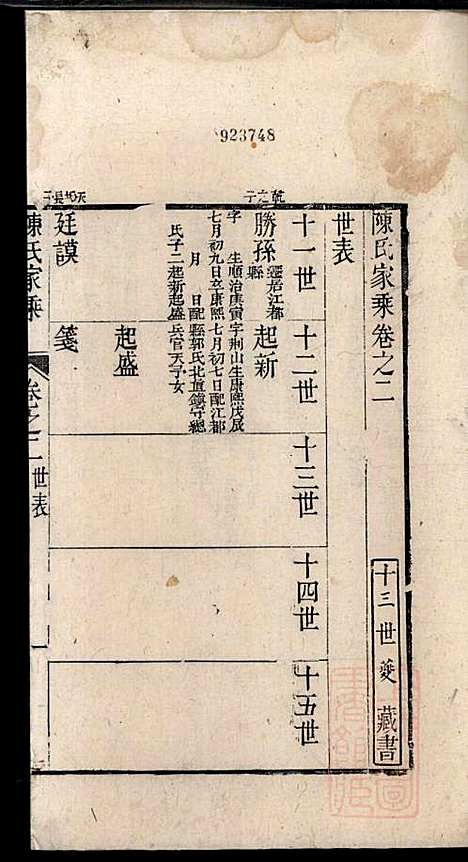 923748
陳氏家乘卷之二
十三世燮藏書
世表
十一世
十二世
十三世
十四世
十五世
勝孫
遷居江都
縣
字
生順治庚寅
七月初九日卒康熙
月 日配縣郭氏
氏子二起新起盛
起新
字荆山生康熙戊辰
七月初七日配江都
北直鎮守總
兵官天子女
起盛
廷謨
箋
陳氏家乘
卷之二
世表